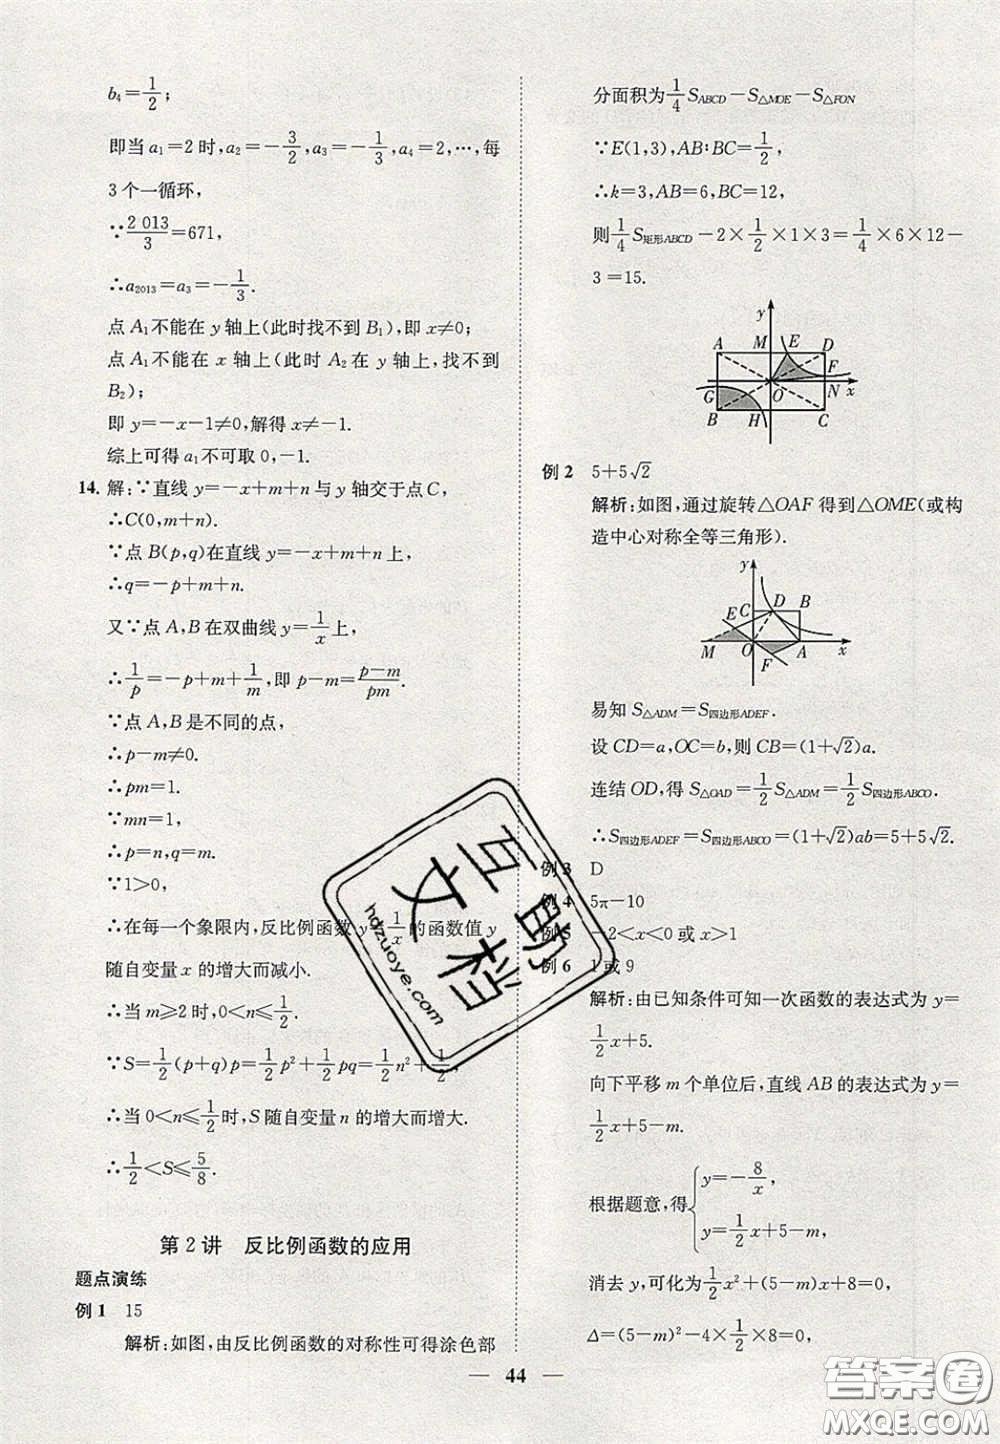 b₄=1/2；
即当 a₁=2 时,a₂=-3/2,a₃=-1/3,a₄=2,…,每
3 个一循环,
∵2 013/3=671,
∴a₂₀₁₃=a₃=-1/3.
点 A₁不能在 y 轴上(此时找不到 B₁),即 x≠0;
点 A₁不能在 x 轴上(此时 A₂在 y 轴上,找不到
B₂);
即 y=-x-1≠0,解得 x≠-1.
综上可得 a₁不可取 0,-1.
14. 解:∵直线 y=-x+m+n 与 y 轴交于点 C,
∴C(0,m+n).
∵点 B(p,q)在直线 y=-x+m+n 上,
∴q=-p+m+n.
又∵点 A,B 在双曲线 y=1/x上,
∴1/p=-p+m+1/m,即 p-m=(p-m)/pm.
∵点 A,B 是不同的点,
∴p-m≠0.
∴pm=1.
∵mn=1,
∴p=n,q=m.
∵1>0,
∴在每一个象限内,反比例函数 y=1/x的函数值 y
随自变量 x 的增大而减小.
∴当 m≥2 时,0<n≤1/2.
∵S=1/2(p+q)p=1/2p²+1/2pq=1/2n²+1/2,
∴当 0<n≤1/2时,S 随自变量 n 的增大而增大.
∴1/2<S≤5/8.
第 2 讲 反比例函数的应用
题点演练
例 1 15
解析:如图,由反比例函数的对称性可得涂色部
分面积为1/4S_ABCD-S_△MOE-S_△FON
∵E(1,3),AB∶BC=1/2,
∴k=3,AB=6,BC=12,
则1/4S_矩形ABCD-2×1/2×1×3=1/4×6×12-
3=15.
y
A M E D
F
G O N x
B H C
例 2 5+5√2
解析:如图,通过旋转△OAF 得到△OME(或构
造中心对称全等三角形).
y
E C D B
M O A x
F
易知 S_△ADM=S_四边形ADEF.
设 CD=a,OC=b,则 CB=(1+√2)a.
连结 OD,得 S_△OAD=1/2S_△ADM=1/2S_四边形ABCO.
∴S_四边形ADEF=S_四边形ABCO=(1+√2)ab=5+5√2.
例 3 D
例 4 5π-10
例 5 -2<x<0 或 x>1
例 6 1 或 9
解析:由已知条件可知一次函数的表达式为 y=
1/2x+5.
向下平移 m 个单位后,直线 AB 的表达式为 y=
1/2x+5-m.
根据题意,得{y=-8/x,
y=1/2x+5-m,
消去 y,可化为1/2x²+(5-m)x+8=0,
Δ=(5-m)²-4×1/2×8=0,
44
互助文档
hdzuoye.com
答案圈
MXQE.COM